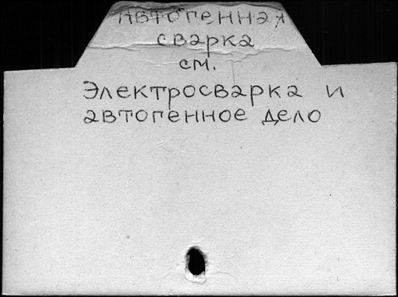 Автогенная
сварка
см.
Электросварка и
автогенное дело